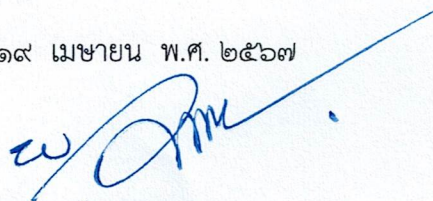 ๑๙ เมษายน พ.ศ. ๒๕๖๗